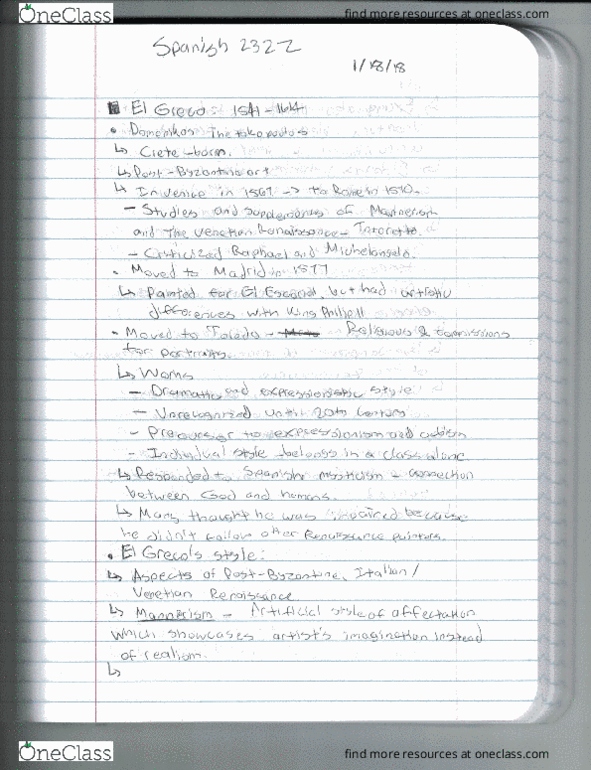 OneClass
find more resources at oneclass.com
Spanish 2322
1/18/18
El Greco: 1541-1614
• Domenikos Theotokopoulos
↳ Crete-born.
↳ Post-Byzantine art
↳ In Venice in 1567 -> to Rome in 1570.
- Studies and of Mannerism
and the Venetian Renaissance-
- Criticized Raphael and Michelangelo.
• Moved to Madrid in 1577
↳ Painted for El Escorial, but had artistic
differences with King Philip II
• Moved to Toledo - Religious & commissions
for portraits
↳ Works
- Dramatic and expressionistic style
- Unrecognized until 20th century
- Precursor to expressionism and cubism
- Individual style belongs in a class alone
↳ Responded to Spanish mysticism - connection
between God and humans.
↳ Many thought he was impaired because
he didn't follow other Renaissance painters.
• El Greco's style:
↳ Aspects of Post-Byzantine, Italian/
Venetian Renaissance.
↳ Mannerism - Artificial style of affectation
which showcases artist's imagination instead
of realism.
↳
OneClass
find more resources at oneclass.com